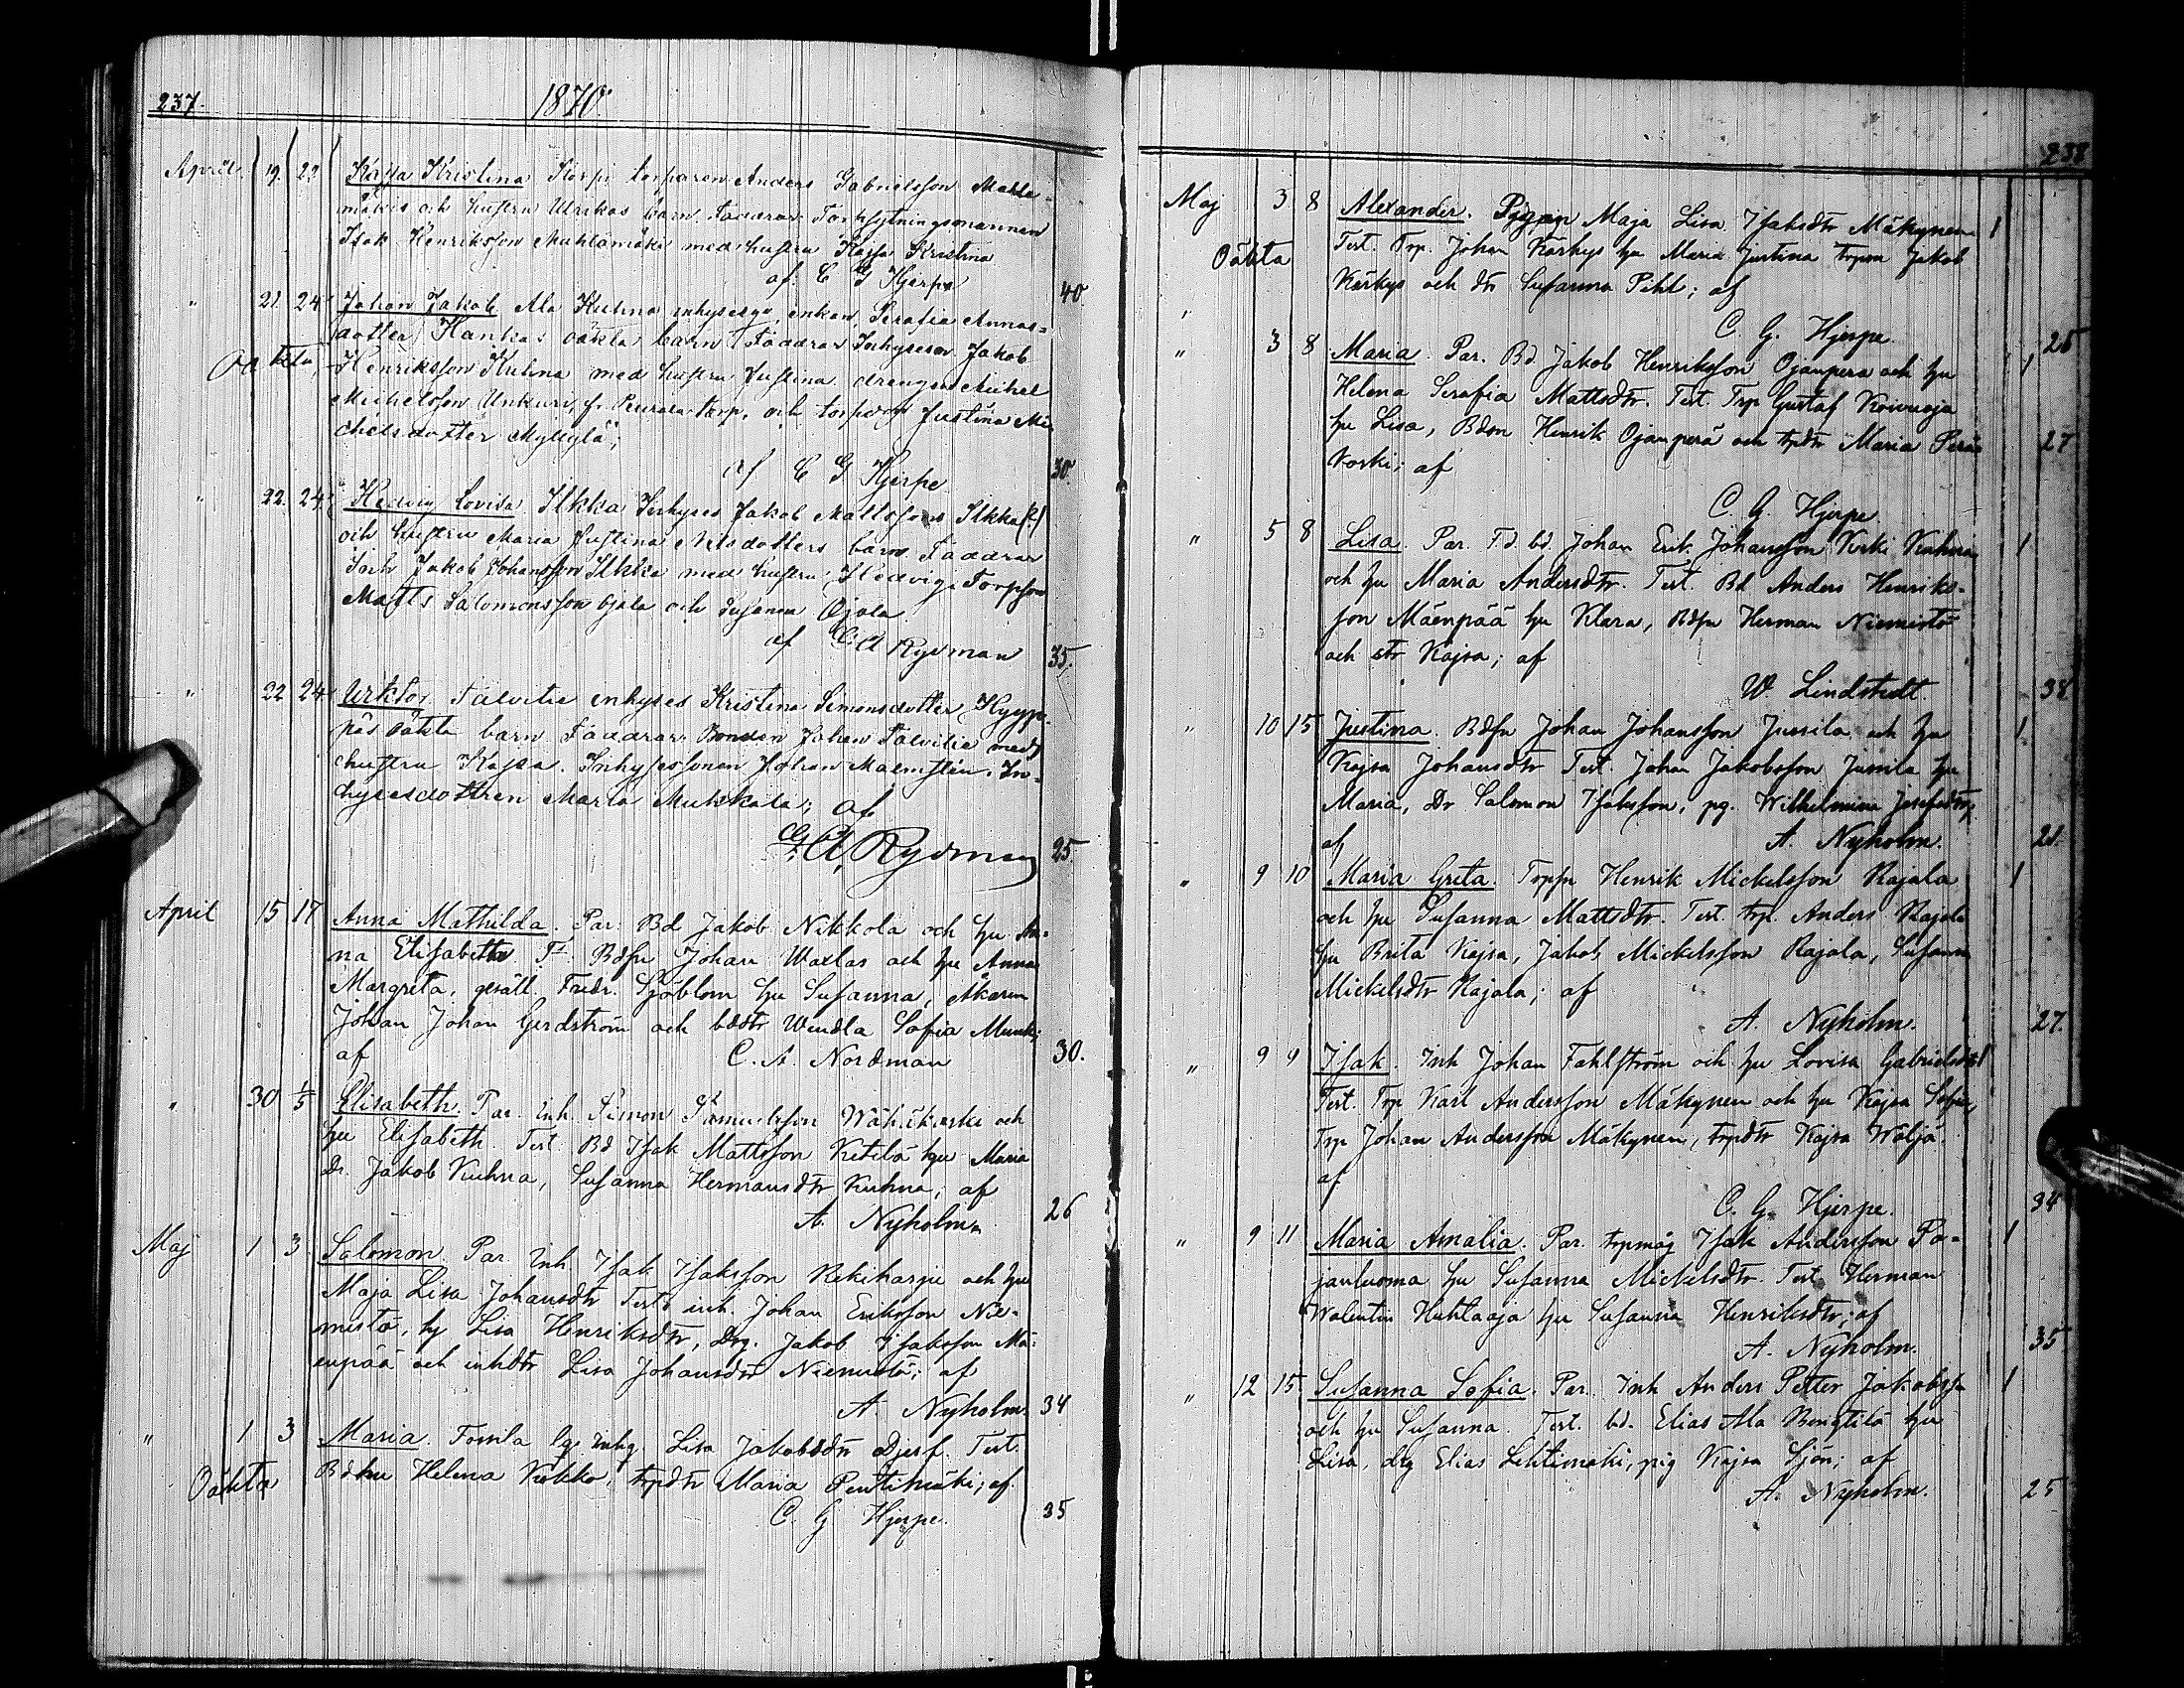 237.
1870.
April 19. 22 Kajsa Kristina Korpi torparen Anders Gabrielsson Mahla-
mäkis och hustru Ulrikas barn. Faddrar Torpsytningsmannen
Isak Henriksson Muhlamäki med hustru Kajsa Kristina
af C G Hjerpe 40
" 21. 24 Johan Jakob Ala Kuhna inhyseses enkan Serafia Annas-
dotter Hankas oäkta barn Faddrar Inhysesen Jakob
Oäkta, Henriksson Kuhna med hustru Justina drengen Michel
Michelsson Unkuri, fr. Peurala torp, och torpdott Justina Mi-
chelsdotter Myllylä;
af C G Hjerpe 30.
" 22. 24. Hedvig Lovisa Ilkka Inhyses Jakob Mattssons Ilkka
och hustru Maria Justina Nilsdotters barn Faddrar
Jakob Johansson Ilkka med hustru Hedvig, Torpson
Matts Salomonsson Ojala och Susanna Ojala
af C A Rydman 35.
" 22 24 Viktor Talvitie inhyses Kristina Simonsdotter Hyyp-
päs oäkta barn Faddrar Bonden Johan Talvitie med
hustru Kajsa. Inhysessonen Johan Malmsten. In-
hysesdottren Maria Mukkala; af
C A Rydman 25.
April 15 17 Anna Mathilda. Par. Bd Jakob Nikkola och hu An-
na Elisabeth T. Bdsn Johan Waxlas och hu Anna
Margreta, gesäll. Fredr. Sjöblom hu Susanna, åkaren
Johan Johan Gerdström och bddtr Wendla Sofia Munk;
af C. A. Nordman 30.
" 30 1/5 Elisabeth. Par. Inh. Simon Samuelsson Wähäkoski och
hu Elisabeth. Test. Bd Isak Mattsson Ketola hu Maria
Dr. Jakob Kuhna, Susanna Hermansdtr Kuhna; af
A. Nyholm 26
Maj 1 3 Salomon Par. Inh. Isak Isaksson Rekiharju och hu
Maja Lisa Johansdtr Test. inh. Johan Eriksson Nie-
mistö, hu Lisa Henriksdtr, Drg. Jakob Isaksson Mä-
enpää och inhdtr Lisa Johansdtr Niemistö; af
A. Nyholm. 34
" 1 3 Maria. Inhg. Lisa Jakobsdtr Djerf. Test.
Oäkta Bdhu Helena Kokko, trpdtr Maria Pentimäki; af
C. G Hjerpe. 35
238
Maj 3 8 Alexander. Maja Lisa Isaksdtr Mäkynen 1
Oäkta Test. Trp. Johan Karhys hu Maria Justina trpsn Jakob
Karhys och dtr Susanna Pihl; af
C. G. Hjerpe. 25
" 3 8 Maria. Par. Bd. Jakob Henriksson Ojanpera och hu 1
Helena Serafia Mattsdtr. Test. Trp Gustaf Koivuoja
hu Lisa, Bdsn Henrik Ojanperä och trpdtr Maria Perä- 27
koski; af
C. G. Hjerpe
" 5 8 Lisa. Par. T.d. bd. Johan Erik Johansson Kuhna 1
och hu Maria Andersdtr. Test. Bd Anders Henriks-
son Mäenpää hu Klara, Bdsn Herman Niemistö
och dtr Kajsa; af
W. Lindstedt 38
" 10 15 Justina. Bdsn Johan Johansson Jussila och hu 1
Kajsa Johansdtr Test. Johan Jakobsson Jussila hu
Maria, Dr Salomon Isaksson, pg. Wilhelmina Josefsdtr;
af A. Nyholm. 21.
" 9 10 Maria Greta. Torpsn Henrik Mickelsson Rajala 1
och hu Susanna Mattsdtr. Test. trp. Anders Rajala
hu Brita Kajsa, Jakob Mickelsson Rajala, Susanna
Mickelsdtr Rajala; af
A. Nyholm. 27.
" 9 9 Isak. Inh Johan Fahlström och hu Lovisa Gabrielsdtr 1
Test. Trp Karl Andersson Mäkynen och hu Kajsa Sofia,
Trp Johan Andersson Mäkynen, trpdtr Kajsa Waljä.
af
C. G. Hjerpe. 34
" 9 11 Maria Amalia. Par. trpmåg Isak Andersson Po- 1
janluoma hu Susanna Mickelsdtr. Test. Herman
Walentin Huhtaoja hu Susanna Henriksdtr; af
A. Nyholm. 35
" 12 15 Susanna Sofia. Par. Inh Anders Petter Jakobss. 1
och hu Susanna. Test. bd. Elias Ala Bengtilä hu
Lisa, drg Elias Lehtimäki, pig Kajsa Sjön; af
A. Nyholm. 25